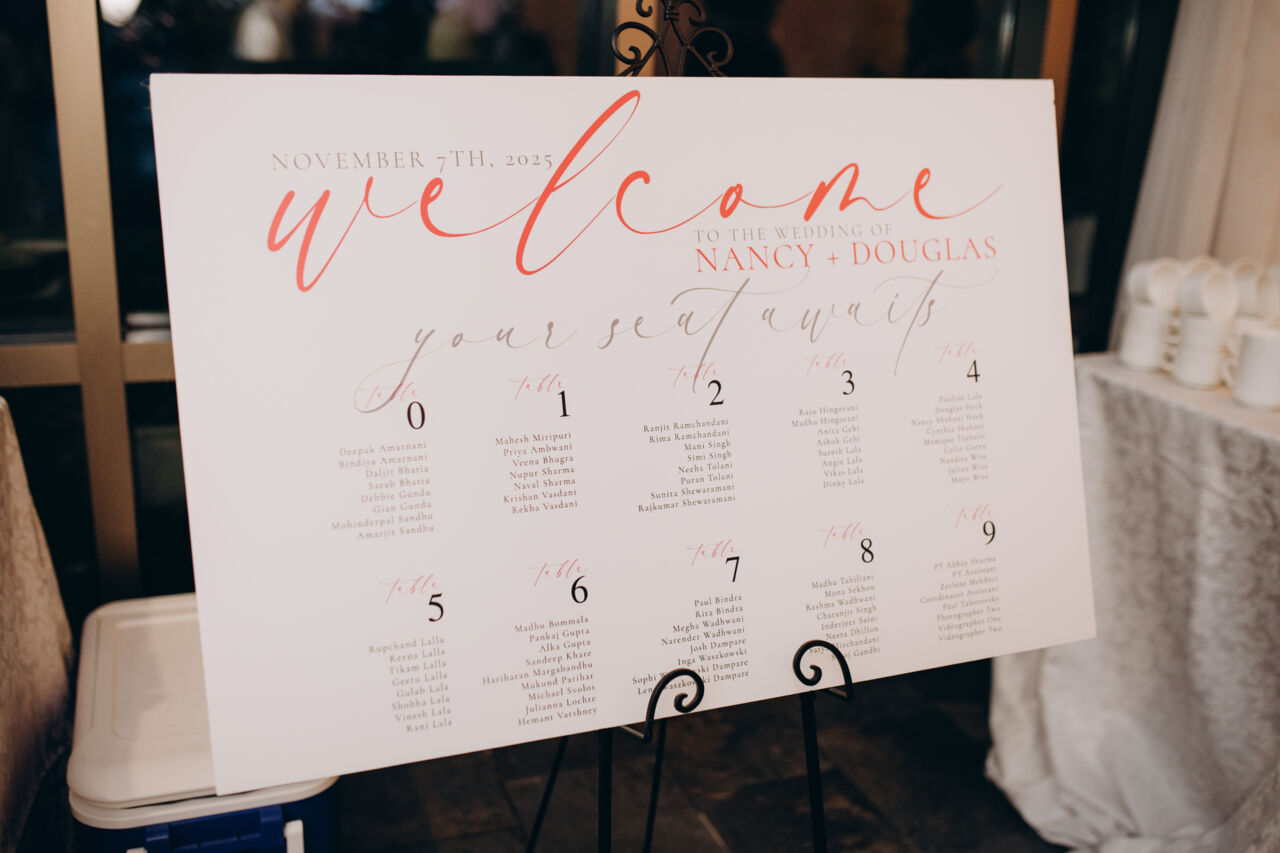 NOVEMBER 7TH, 2025
welcome
TO THE WEDDING OF
NANCY + DOUGLAS
your seat awaits
table
0
Deepak Amarnani
Bindiya Amarnani
Daljir Bhatia
Sarab Bhatia
Debbie Gundu
Gian Gundu
Mohinderpal Sandhu
Amarjit Sandhu
table
1
Mahesh Miripuri
Priya Ambwani
Veena Bhugra
Nupur Sharma
Naval Sharma
Krishan Vasdani
Rekha Vasdani
table
2
Ranjit Ramchandani
Rima Ramchandani
Mani Singh
Simi Singh
Neeha Tolani
Puran Tolani
Sunita Shewaramani
Rajkumar Shewaramani
table
3
Raju Hingorani
Madhu Hingorani
Anita Gehi
Ashok Gehi
Suresh Lala
Angie Lala
Vikas Lala
Dinky Lala
table
4
Pauline Lala
Douglas Heck
Nancy Shahani Heck
Cynthia Shahani
Monique Trabulsi
Colin Green
Nandita Wise
Julian Wise
Maya Wise
table
5
Rupchand Lalla
Reena Lalla
Tikam Lalla
Geetu Lalla
Gulab Lala
Shobha Lala
Vinesh Lala
Rani Lala
table
6
Madhu Bommala
Pankaj Gupta
Alka Gupta
Sandeep Khare
Hariharan Margabandhu
Mukund Parihar
Michael Svolos
Julianna Lochre
Hemant Varshney
table
7
Paul Bindra
Rita Bindra
Megha Wadhwani
Narender Wadhwani
Josh Dampare
Inga Waszkowski
Dampare
Dampare
table
8
Madhu Tahiliani
Mona Sekhon
Reshma Wadhwani
Charanjit Singh
Inderjeet Saini
Neeta Dhillon
Mirchandani
Gandhi
table
9
PT Abhay Sharma
PT Assistant
Zerlene Mekdeci
Coordinator Assistant
Paul Taborovsky
Photographer Two
Videographer One
Videographer Two